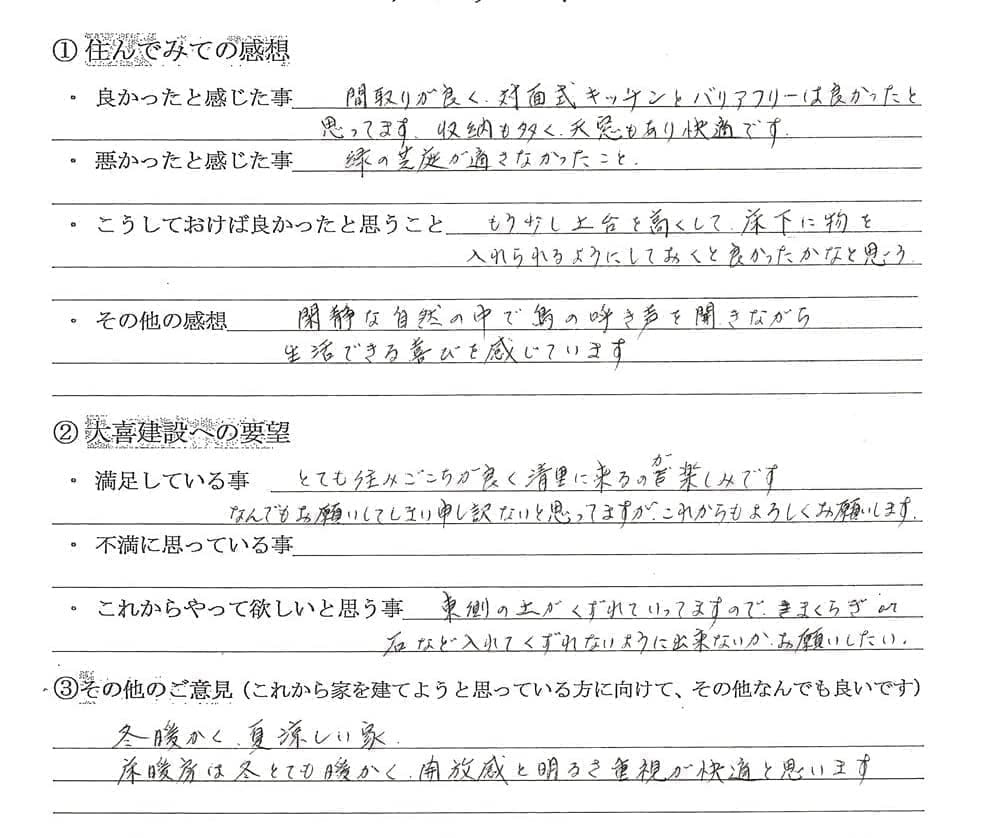 ① 住んでみての感想
・ 良かったと感じた事 間取りが良く、対面式キッチンとバリアフリーは良かったと
思ってます。収納も多く、天窓もあり快適です。
・ 悪かったと感じた事 緑の芝庭が適さなかったこと。
・ こうしておけば良かったと思うこと もう少し土台を高くして、床下に物を
入れられるようにしておくと良かったかなと思う
・ その他の感想 閑静な自然の中で鳥の呼き声を聞きながら
生活できる喜びを感じています
② 大喜建設への要望
・ 満足している事 とても住みごこちが良く清里に来るのが楽しみです
なんでもお願いしてしまい申し訳ないと思ってますが、これからもよろしくお願いします。
・ 不満に思っている事
・ これからやって欲しいと思う事 東側の土がくずれていってますので、まくらぎor
石など入れてくずれないように出来ないか、お願いしたい。
③その他のご意見（これから家を建てようと思っている方に向けて、その他なんでも良いです）
冬暖かく、夏涼しい家
床暖房は冬とても暖かく、開放感と明るさ重視が快適と思います